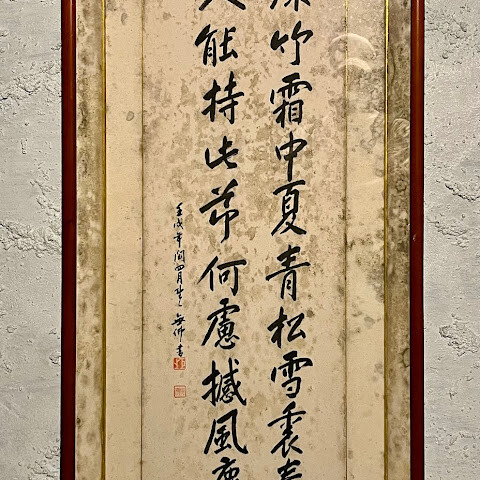 竹霜中夏青松雪裏春
人能持此節何慮撼風塵
壬戌年閏四月 無佛書